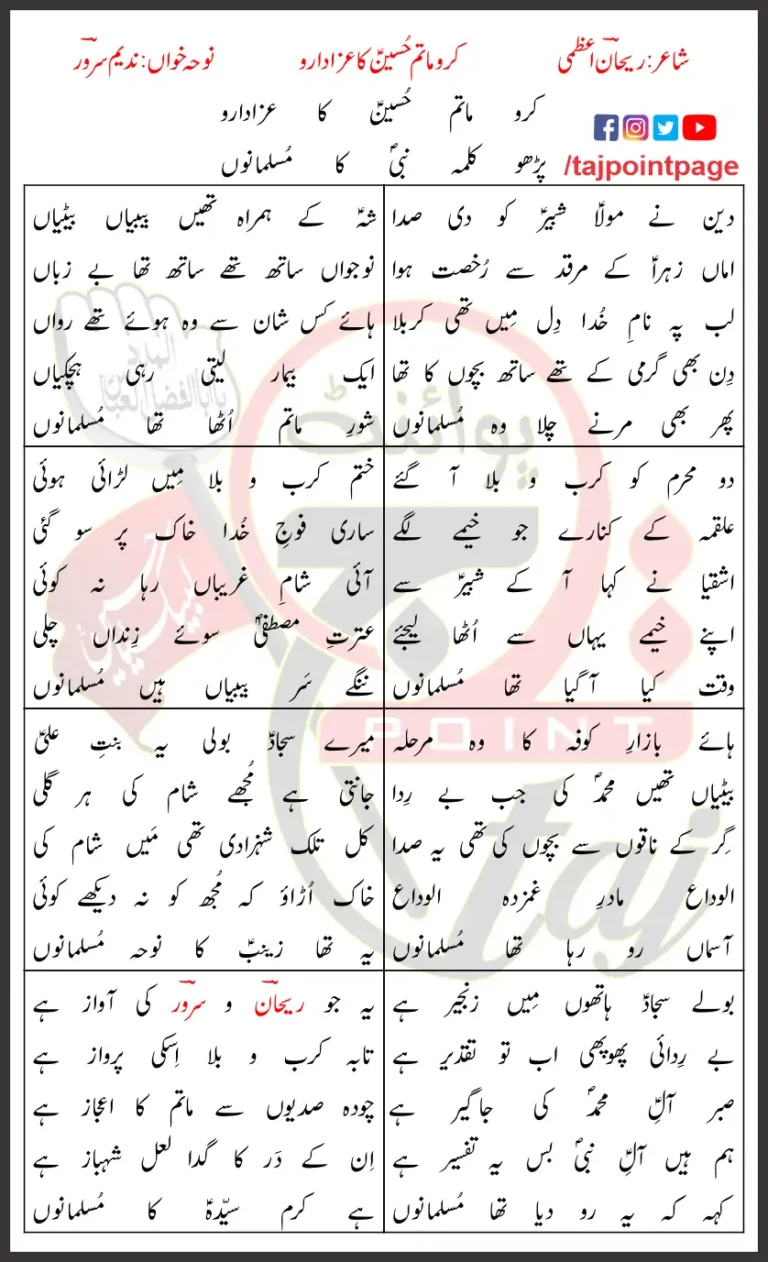 شاعر: ریحانؔ اعظمی کرو ماتم حُسینؑ کا عزادارو نوحہ خواں: ندیم سرورؔ
کرو ماتم حُسینؑ کا عزادارو
پڑھو کلمہ نبیؐ کا مُسلمانوں
/tajpointpage
دین نے مولاؑ شبیرؑ کو دی صدا
اماں زہراؑ کے مرقد سے رُخصت ہوا
لب پہ نامِ خُدا دِل مِیں تھی کربلا
دِن بھی گرمی کے تھے ساتھ بچوں کا تھا
پھر بھی مرنے چلا وہ مُسلمانوں
شہؑ کے ہمراہ تھیں بیبیاں بیٹیاں
نوجواں ساتھ تھے ساتھ تھا بے زباں
ہائے کس شان سے وہ ہوئے تھے رواں
ایک بیمار لیتی رہی ہچکیاں
شورِ ماتم اُٹھا تھا مُسلمانوں
دو محرم کو کرب و بلا آ گئے
علقمہ کے کنارے جو خیمے لگے
اشقیا نے کہا آ کے شبیرؑ سے
اپنے خیمے یہاں سے اُٹھا لیجئے
وقت کیا آ گیا تھا مُسلمانوں
ختم کرب و بلا مِیں لڑائی ہوئی
ساری فوجِ خُدا خاک پر سو گئی
آئی شامِ غریباں رہا نہ کوئی
عترتِ مصطفیٰؐ سوئے زِنداں چلی
ننگے سَر بیبیاں ہیں مُسلمانوں
ہائے بازارِ کوفہ کا وہ مرحلہ
بیٹیاں تھیں محمدؐ کی جب بے رِدا
گِر کے ناقوں سے بچوں کی تھی یہ صدا
الوداع مادرِ غمزدہ الوداع
آسماں رو رہا تھا مُسلمانوں
میرے سجادؑ بولی یہ بنتِ علیؑ
جانتی ہے مُجھے شام کی ہر گلی
کل تلک شہزادی تھی مَیں شام کی
خاک اُڑاؤ کہ مُجھ کو نہ دیکھے کوئی
یہ تھا زینبؑ کا نوحہ مُسلمانوں
بولے سجادؑ ہاتھوں مِیں زنجیر ہے
بے رِدائی پھوپھی اب تو تقدیر ہے
صبر آلِؑ محمدؐ کی جاگیر ہے
ہم ہیں آلِؑ نبیؐ بس یہ تفسیر ہے
کہہ کہ یہ رو دیا تھا مُسلمانوں
یہ جو ریحانؔ و سرورؔ کی آواز ہے
تابہ کرب و بلا اِسکی پرواز ہے
چودہ صدیوں سے ماتم کا اعجاز ہے
اِن کے دَر کا گدا لعل شہباز ہے
ہے کرم سیّدہؑ کا مُسلمانوں
پوائنٹ
تاج
POINT
taj